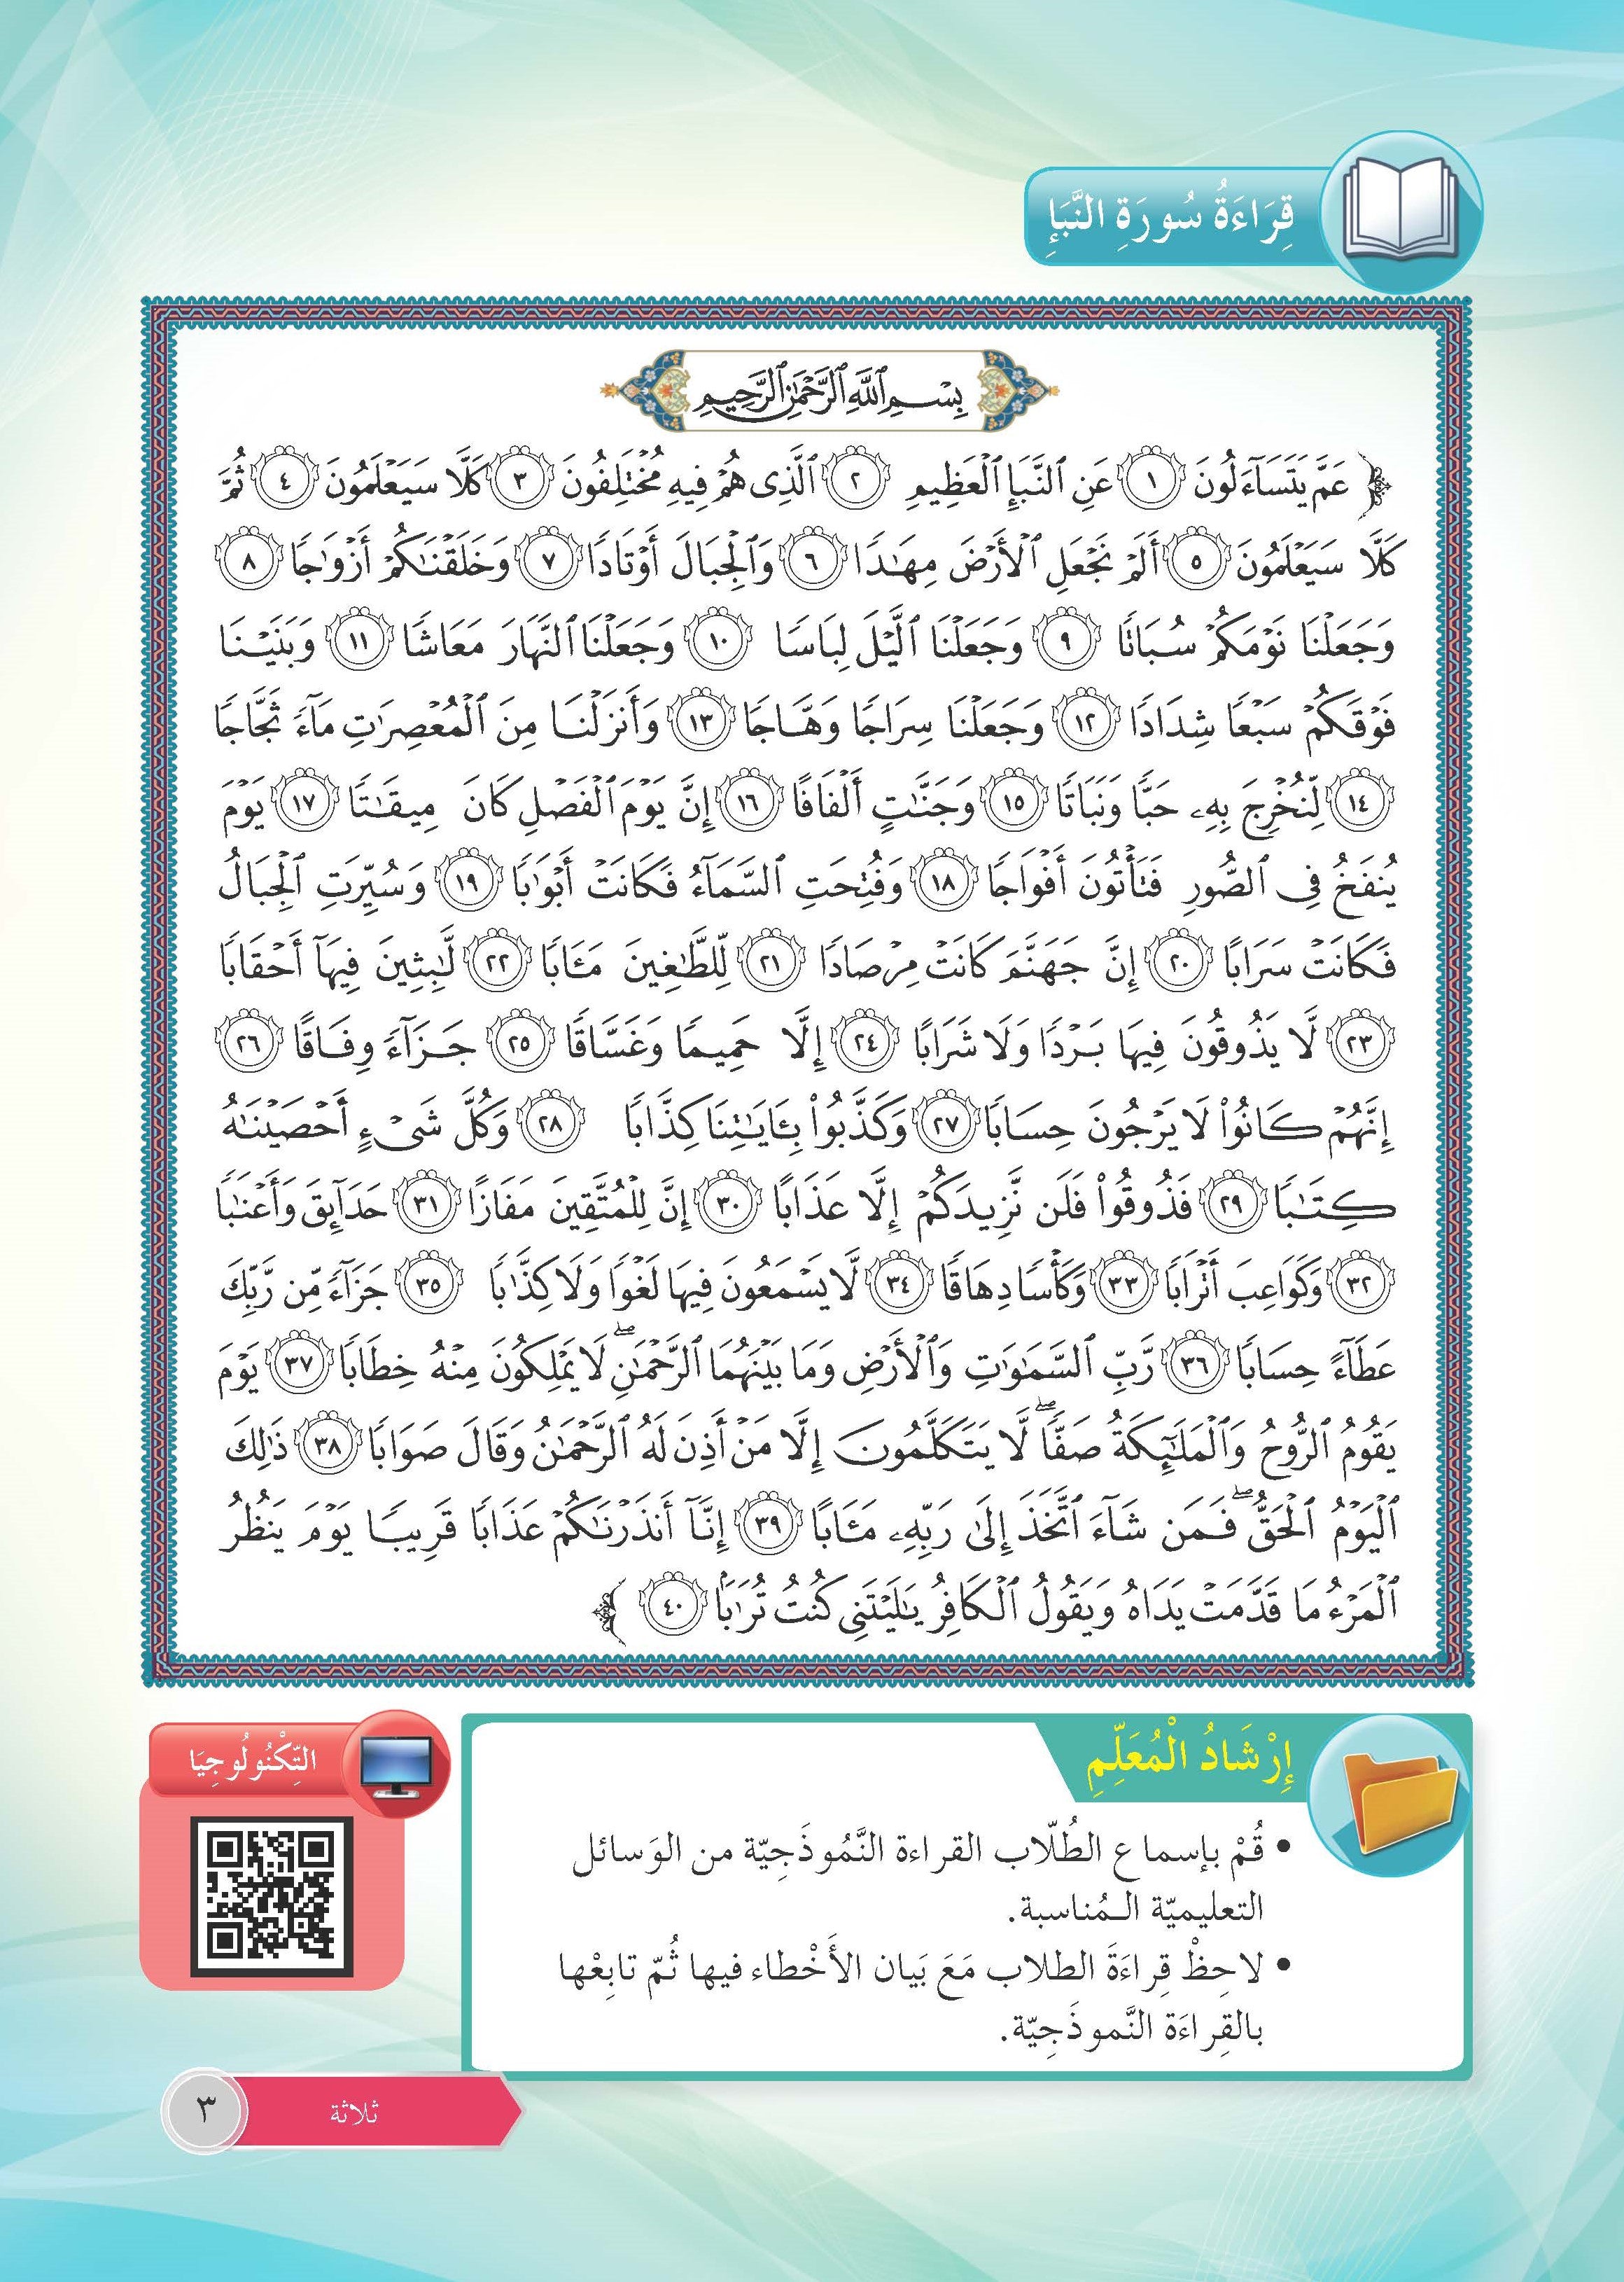 قِرَاءَةُ سُورَةِ النَّبَإِ
بِسْمِ ٱللَّهِ ٱلرَّحْمَٰنِ ٱلرَّحِيمِ
﴿ عَمَّ يَتَسَآءَلُونَ ١ عَنِ ٱلنَّبَإِ ٱلْعَظِيمِ ٢ ٱلَّذِى هُمْ فِيهِ مُخْتَلِفُونَ ٣ كَلَّا سَيَعْلَمُونَ ٤ ثُمَّ
كَلَّا سَيَعْلَمُونَ ٥ أَلَمْ نَجْعَلِ ٱلْأَرْضَ مِهَٰدًا ٦ وَٱلْجِبَالَ أَوْتَادًا ٧ وَخَلَقْنَٰكُمْ أَزْوَٰجًا ٨
وَجَعَلْنَا نَوْمَكُمْ سُبَاتًا ٩ وَجَعَلْنَا ٱلَّيْلَ لِبَاسًا ١٠ وَجَعَلْنَا ٱلنَّهَارَ مَعَاشًا ١١ وَبَنَيْنَا
فَوْقَكُمْ سَبْعًا شِدَادًا ١٢ وَجَعَلْنَا سِرَاجًا وَهَّاجًا ١٣ وَأَنزَلْنَا مِنَ ٱلْمُعْصِرَٰتِ مَآءً ثَجَّاجًا
١٤ لِّنُخْرِجَ بِهِۦ حَبًّا وَنَبَاتًا ١٥ وَجَنَّٰتٍ أَلْفَافًا ١٦ إِنَّ يَوْمَ ٱلْفَصْلِ كَانَ مِيقَٰتًا ١٧ يَوْمَ
يُنفَخُ فِى ٱلصُّورِ فَتَأْتُونَ أَفْوَاجًا ١٨ وَفُتِحَتِ ٱلسَّمَآءُ فَكَانَتْ أَبْوَٰبًا ١٩ وَسُيِّرَتِ ٱلْجِبَالُ
فَكَانَتْ سَرَابًا ٢٠ إِنَّ جَهَنَّمَ كَانَتْ مِرْصَادًا ٢١ لِّلطَّٰغِينَ مَـَٔابًا ٢٢ لَّٰبِثِينَ فِيهَآ أَحْقَابًا
٢٣ لَّا يَذُوقُونَ فِيهَا بَرْدًا وَلَا شَرَابًا ٢٤ إِلَّا حَمِيمًا وَغَسَّاقًا ٢٥ جَزَآءً وِفَاقًا ٢٦
إِنَّهُمْ كَانُوا۟ لَا يَرْجُونَ حِسَابًا ٢٧ وَكَذَّبُوا۟ بِـَٔايَٰتِنَا كِذَّابًا ٢٨ وَكُلَّ شَىْءٍ أَحْصَيْنَٰهُ
كِتَٰبًا ٢٩ فَذُوقُوا۟ فَلَن نَّزِيدَكُمْ إِلَّا عَذَابًا ٣٠ إِنَّ لِلْمُتَّقِينَ مَفَازًا ٣١ حَدَآئِقَ وَأَعْنَٰبًا
٣٢ وَكَوَاعِبَ أَتْرَابًا ٣٣ وَكَأْسًا دِهَاقًا ٣٤ لَّا يَسْمَعُونَ فِيهَا لَغْوًا وَلَا كِذَّٰبًا ٣٥ جَزَآءً مِّن رَّبِّكَ
عَطَآءً حِسَابًا ٣٦ رَّبِّ ٱلسَّمَٰوَٰتِ وَٱلْأَرْضِ وَمَا بَيْنَهُمَا ٱلرَّحْمَٰنِ ۖ لَا يَمْلِكُونَ مِنْهُ خِطَابًا ٣٧ يَوْمَ
يَقُومُ ٱلرُّوحُ وَٱلْمَلَٰٓئِكَةُ صَفًّا ۖ لَّا يَتَكَلَّمُونَ إِلَّا مَنْ أَذِنَ لَهُ ٱلرَّحْمَٰنُ وَقَالَ صَوَابًا ٣٨ ذَٰلِكَ
ٱلْيَوْمُ ٱلْحَقُّ ۖ فَمَن شَآءَ ٱتَّخَذَ إِلَىٰ رَبِّهِۦ مَـَٔابًا ٣٩ إِنَّآ أَنذَرْنَٰكُمْ عَذَابًا قَرِيبًا يَوْمَ يَنظُرُ
ٱلْمَرْءُ مَا قَدَّمَتْ يَدَاهُ وَيَقُولُ ٱلْكَافِرُ يَٰلَيْتَنِى كُنتُ تُرَٰبًۢا ٤٠ ﴾
إِرْشَادُ الْمُعَلِّمِ
• قُمْ بإسماع الطُلّاب القراءة النَّمُوذَجِيّة من الوَسائل
التعليميّة الـمُناسبة.
• لاحِظْ قِراءَةَ الطلاب مَعَ بَيان الأَخْطاء فيها ثُمّ تابِعْها
بالقِراءَة النَّموذَجِيّة.
التِّكْنُولُوجِيَا
ثلاثة
٣